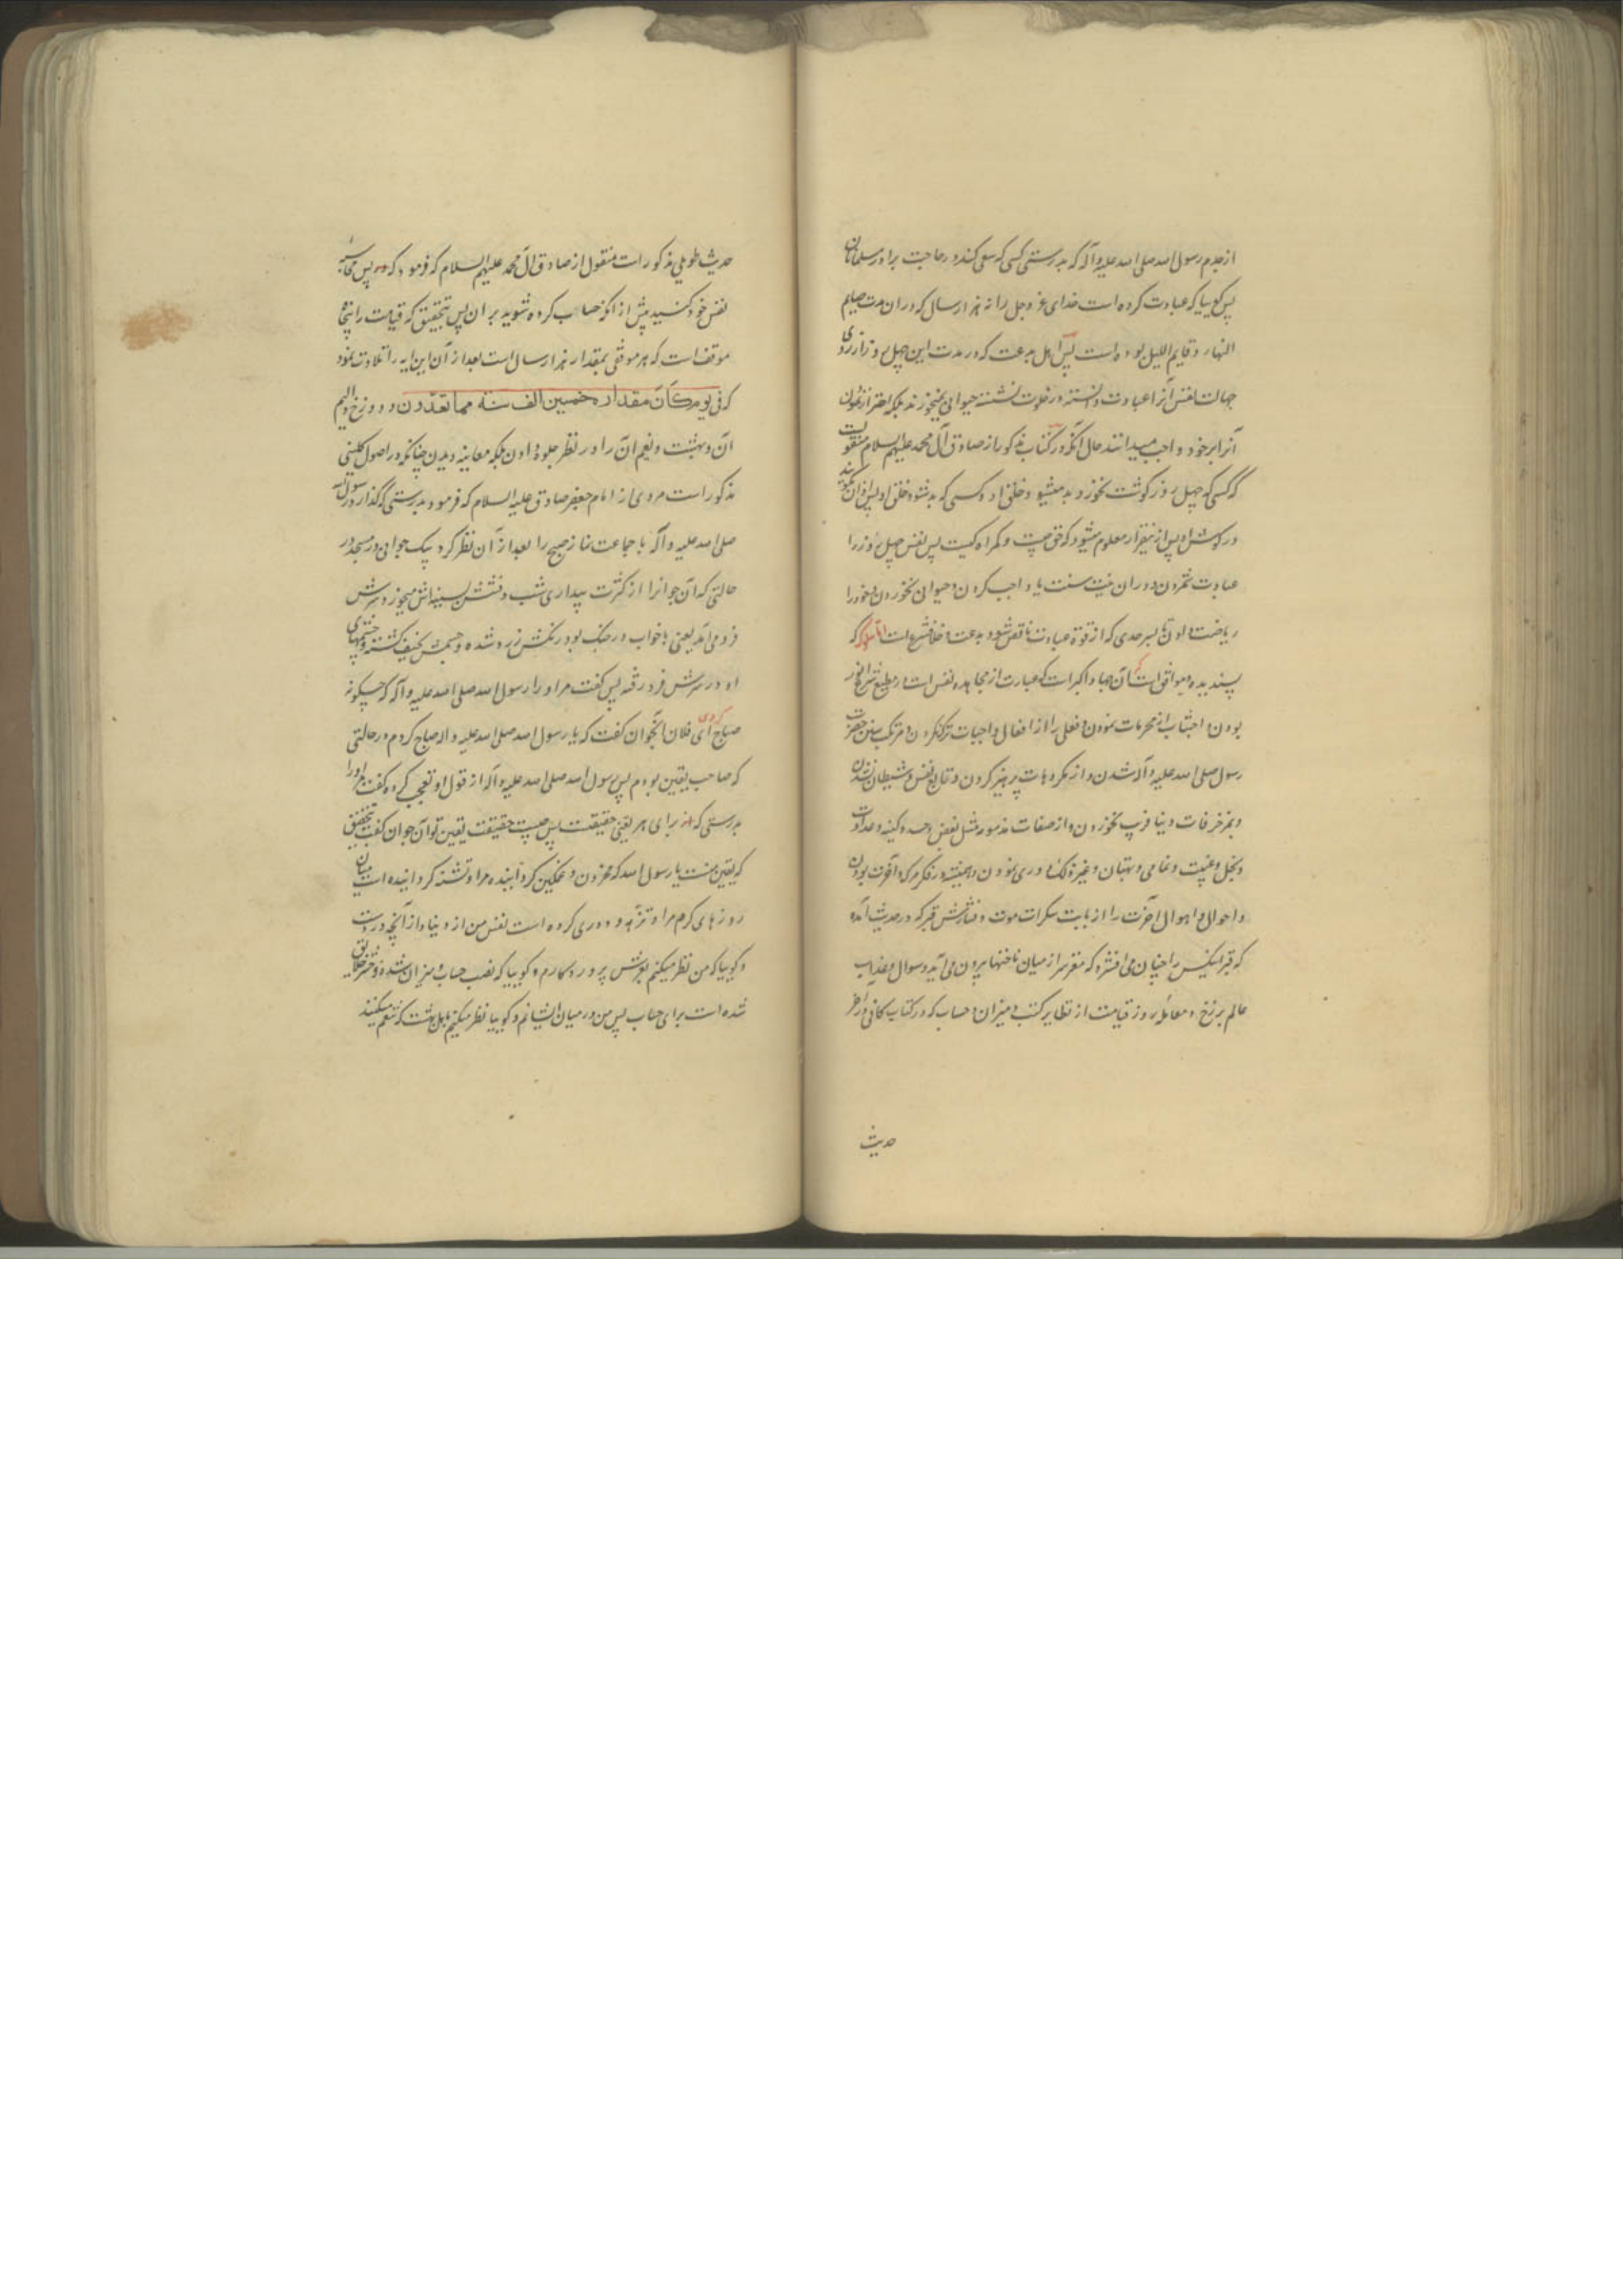 ازجدم رسول الله صلی الله علیه وآله که بدرستی کسی که سعی کند در حاجت برادر مسلمانان
پس گوییا که عبادت کرده است خدای عز وجل را نه هزار سال که در ان مدت صایم
النهار و قایم اللیل بوده است پس اهل بدعت که در مدت این چهل روز از روی
جهالت نفس آنرا عبادت دانسته در خلوت نشسته حیوانی نمیخورند بلکه احتراز نمودن
آنرا بر خود واجب میدانند حال آنکه در کتاب مذکور از صادق آل محمد علیهم السلام منقولست
که کسی که چهل روز گوشت نخورد بد میشود خلق او و کسی که بد شود خلق او پس اذان بگویند
در گوش او پس ازینقرار معلوم میشود که حق چیست و گمراه کیست پس نفس چهل روز را
عبادت شمردن و در ان نیت سنت یا واجب کردن و حیوانی نخوردن و خود را
ریاضت دادن تا بسرحدی که از قوة عبادت ناقص شود بدعت و خلاف شرع است
پسندیده و موافق است آن جهاد اکبرست که عبارت از مجاهده نفس است و مطیع شرع انور
بودن و اجتناب از محرمات نمودن و فعلی را از افعال واجبات ترک نکردن و مرتکب سنن حضرت
رسول صلی الله علیه وآله شدن و از مکروهات پرهیز کردن و تابع نفس و شیطان نشدن
و بمزخرفات دنیا فریب نخوردن و از صفات مذمومه مثل بغض و حسد و کینه و عداوت
و بخل و غیبت و نمامی و بهتان و غیره ذلک دوری نمودن و همیشه در فکر مرگ و آخرت بودن
و احوال و اهوال آخرت را از بابت سکرات موت و فشارش قبر که در حدیث آمده
که قبر انکس را چنان می افشرد که مغز سر از میان ناخنها بیرون می آید و سوال و عذاب
عالم برزخ و معامله روز قیامت از تطایر کتب و میزان و حساب که در کتاب کافی در اخر
حدیث
حدیث طویلی مذکور است منقول از صادق آل محمد علیهم السلام که فرمود که پس محاسبه
نفس خود کنید پیش از آنکه حساب کرده شوید بر ان پس بتحقیق که قیامت را پنجاه
موقف است که هر موقفی بمقدار هزار سال است بعد از آن این ایه را تلاوت نمود
که فی یوم کان مقداره خمسین الف سنة مما تعدّون و دوزخ و الیم
آن و بهشت و نعیم آن را در نظر جلوه دادن بلکه معاینه دیدن چنانکه در اصول کلینی
مذکور است مروی از امام جعفر صادق علیه السلام که فرمود بدرستی که گذارد رسول الله
صلی الله علیه وآله با جماعت نماز صبح را بعد از آن نظر کرد بیک جوانی در مسجد در
حالتی که آن جوانرا از کثرت بیداری شب
فرو می آمد یعنی با خواب در جنگ بود رنگش زرد شده و جسمش نحیف گشته و چشمهای
او در سرش فرو رفته پس گفت مر او را رسول الله صلی الله علیه وآله که چگونه
صباح کردی ای فلان آنجوان گفت که یا رسول الله صلی الله علیه واله صباح کردم در حالتی
که صاحب یقین بودم پس رسول الله صلی الله علیه وآله از قول او تعجب کرده گفت مر او را
بدرستی که از برای هر یقینی حقیقتست پس چیست حقیقت یقین تو آن جوان گفت بتحقیق
که یقین منست یا رسول الله که محزون و غمگین گردانیده مرا و تشنه گردانیده است میان
روزهای گرم مرا و دوری کرده است نفس من از دنیا و از آنچه دروست
و گوییا که من نظر میکنم بعرش پروردگارم و گوییا که نصب حساب و میزان شده و حشر خلایق
شده است برای حساب پس من در میان ایشانم و گوییا نظر میکنم باهل بهشت که تنعم میکنند